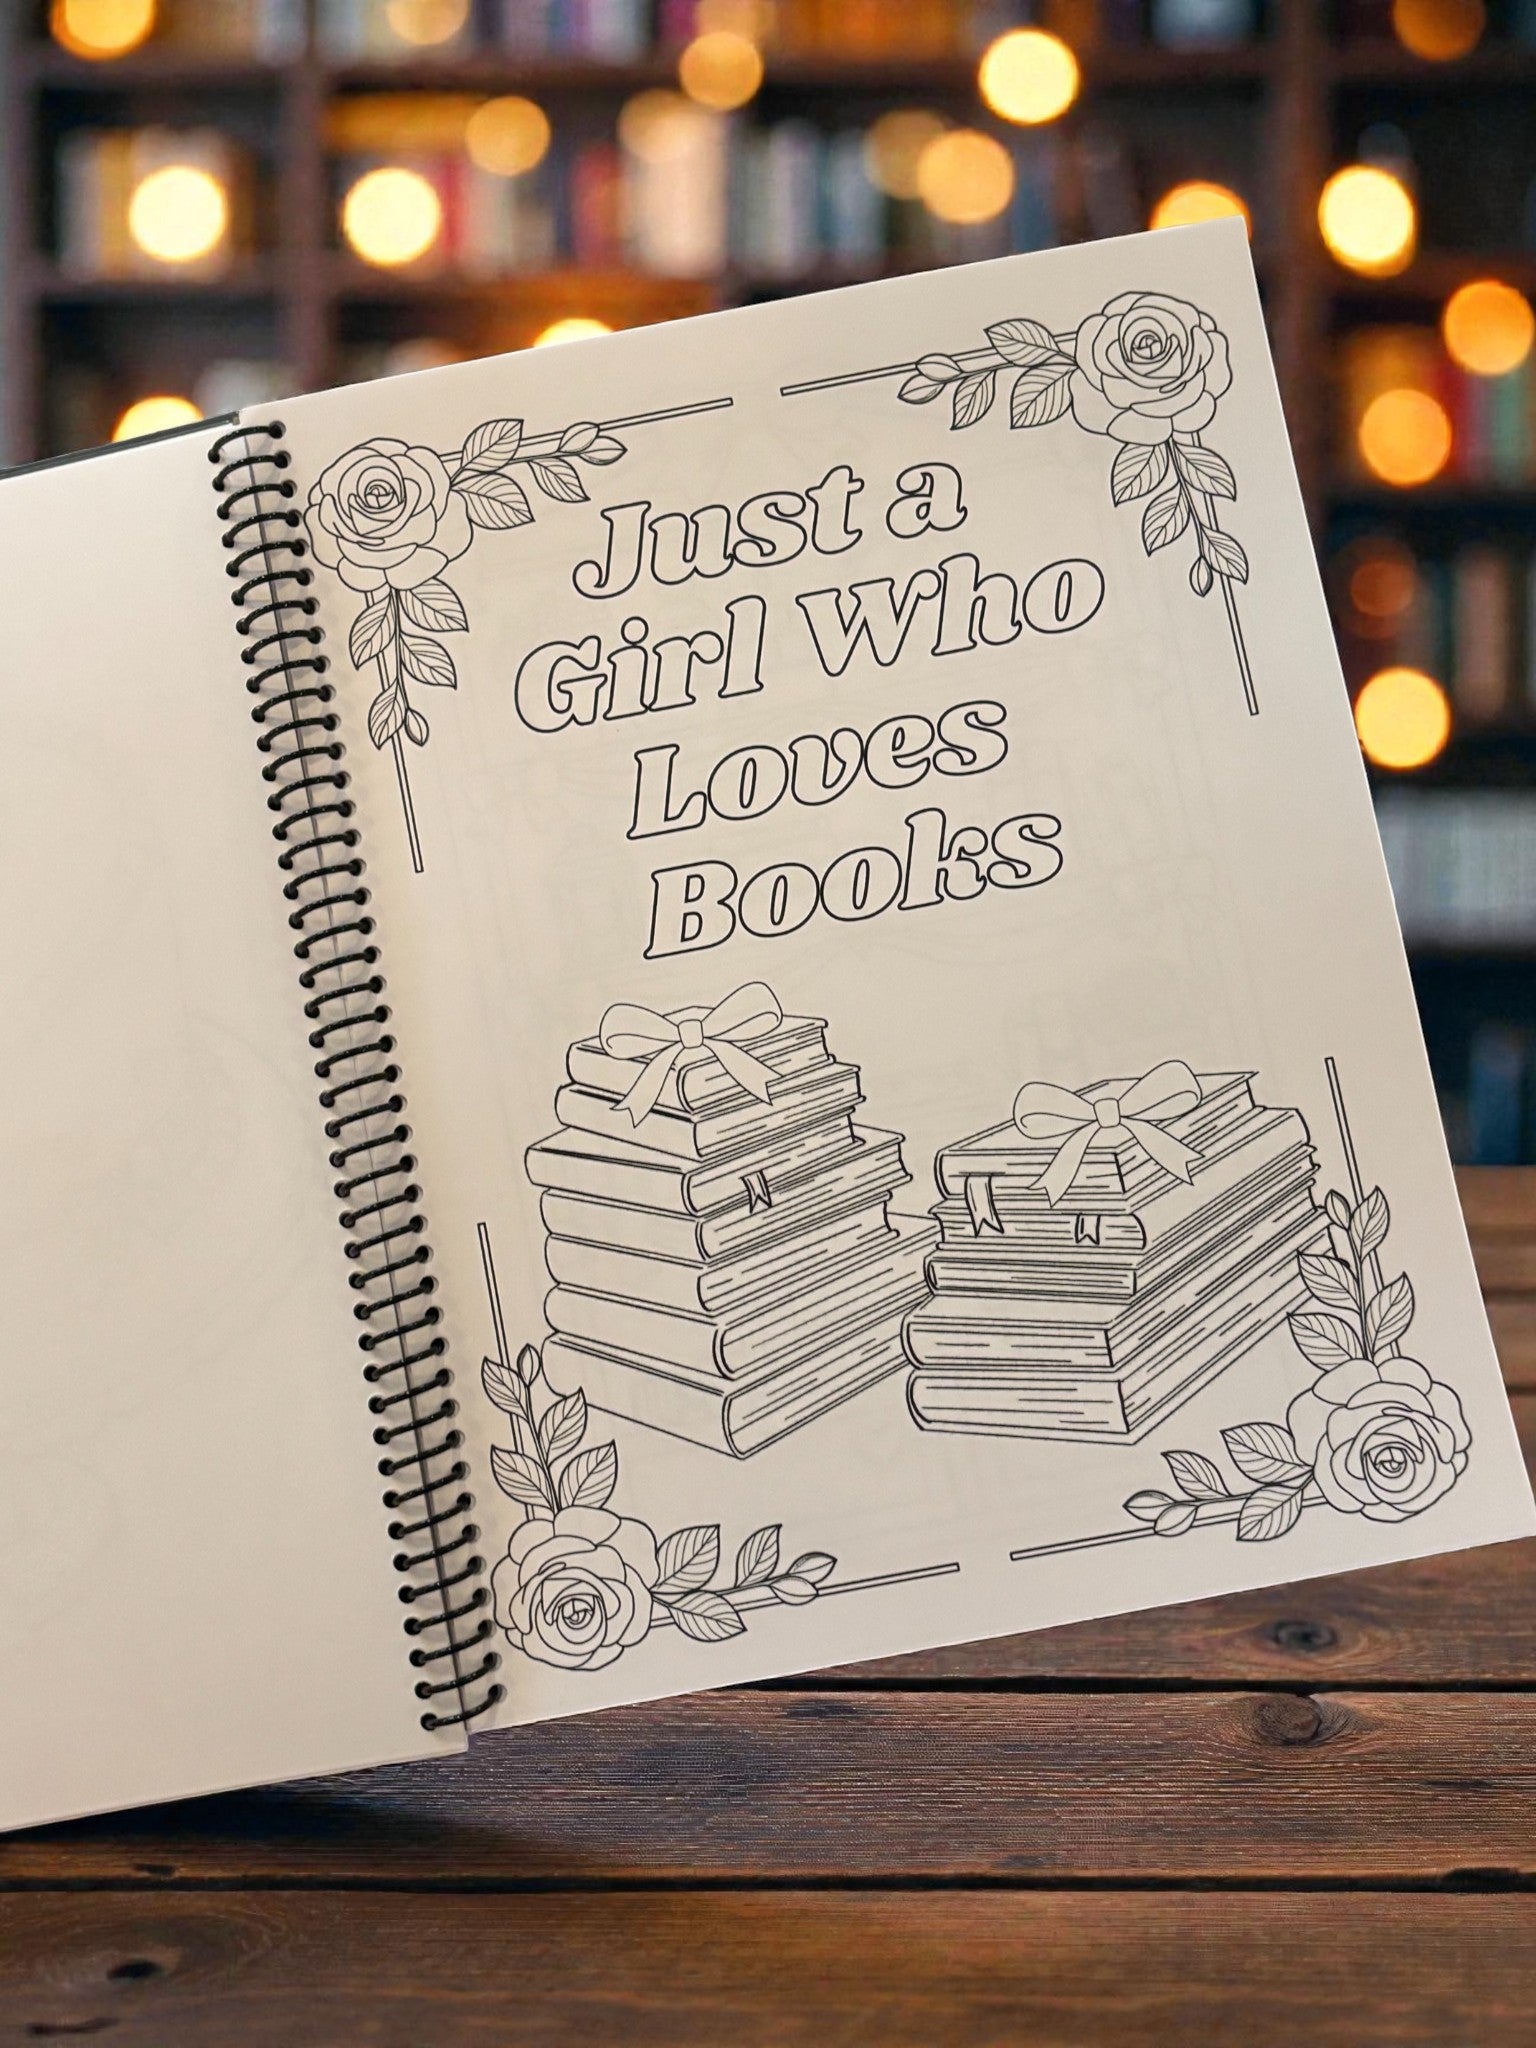 Just a
Girl Who
Loves
Books